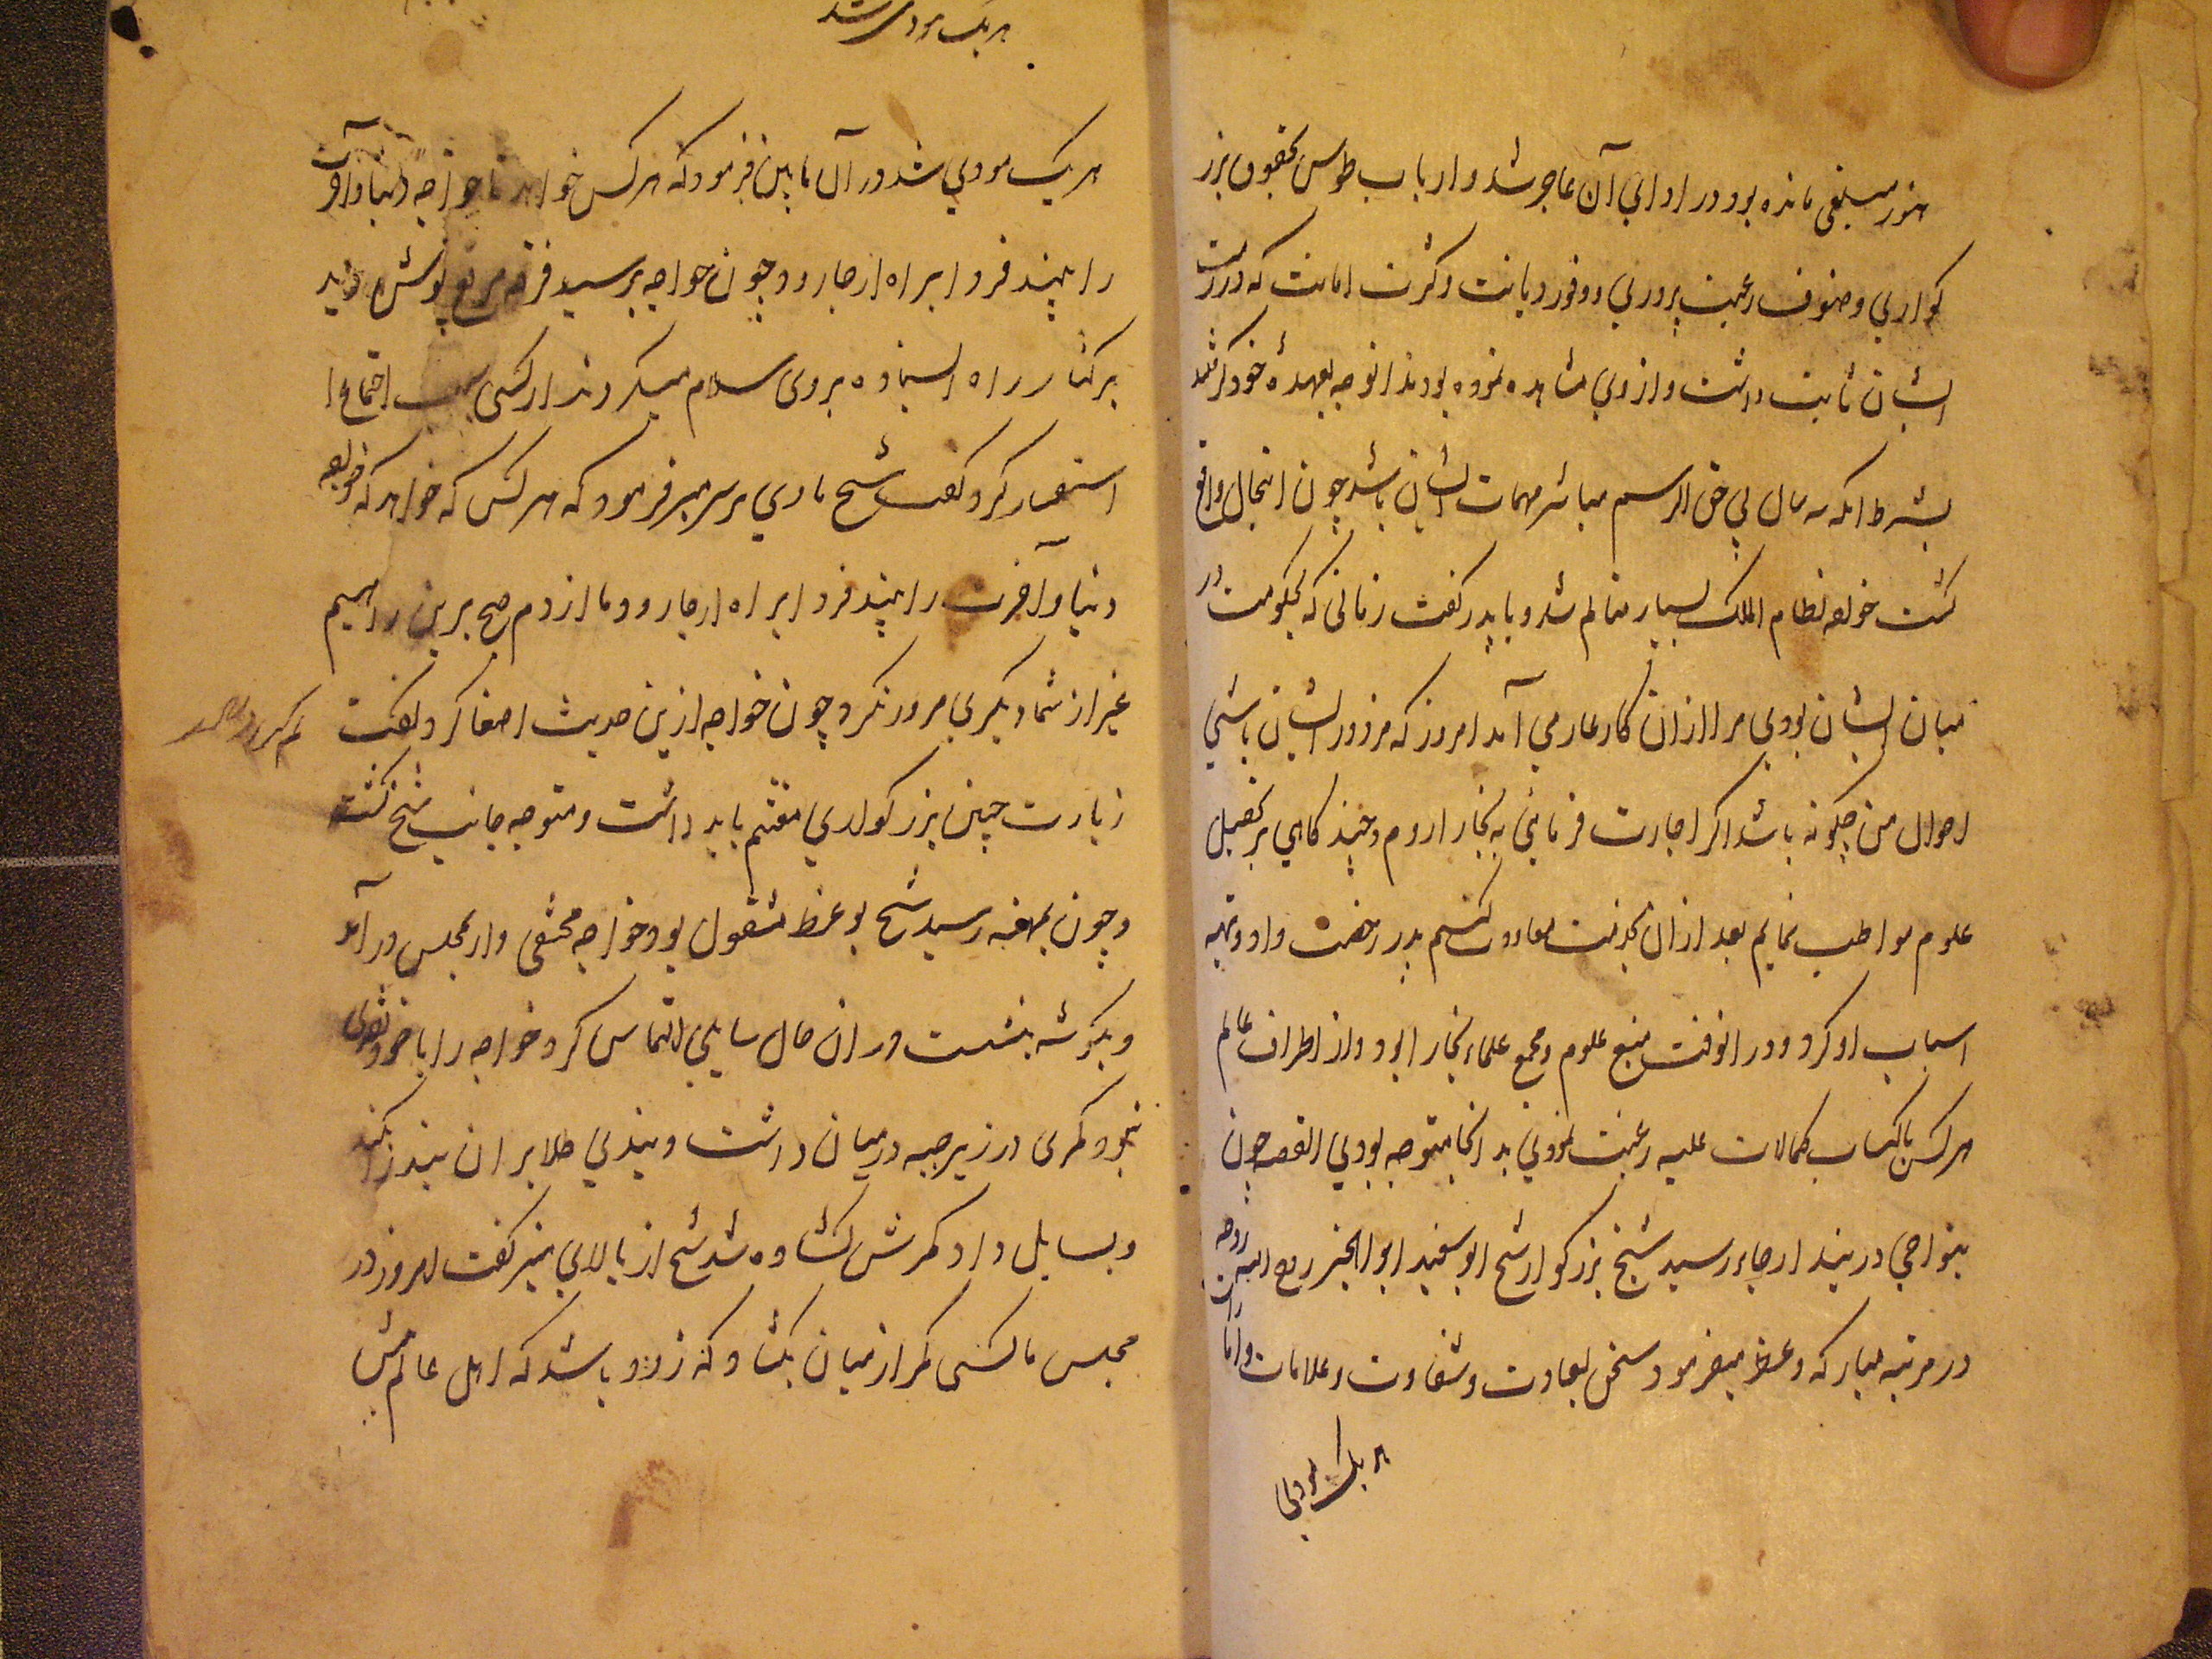 هنوز مبلغی مانده بود در ادای آن عاجز شد و ارباب طوس بحقوق بزر
کواری و صنوف رعیت پروری و وفور دیانت و کثرت امانت که در ذمت
ایشان ثابت داشت و از وی مشاهده نموده بودند انوجه بعهده خود گرفتند
بشرط انکه سه سال بی حق الرسم مباشر مهمات ایشان باشد چون اینحال واقع
کشت خواجه نظام الملک بسیار متالم شد و با پدر کفت زمانی که بحکومت در
میان ایشان بودی مرا ازان کار عار می آمد امروز که مزدور ایشان باشی
احوال من چکونه باشد اکر اجازت فرمایی به بخارا روم و چند کاهی بر تحصیل
علوم مواظبت نمایم بعد ازان بخدمت معاودت کنیم پدر رخصت داد و تهیه
اسباب او کرد و در انوقت منبع علوم و مجمع علماء بخارا بود و از اطراف عالم
هرکس باکتساب کمالات علمیه رغبت نمودی بدانجا متوجه بودی القصه چون
بنواحی در بند ارجاء رسید شیخ بزرکوار شیخ ابو سعید ابو الخیر روح الله روحه
در مرتبه مبارکه وعظ میفرمود سخن بسعادت و شقاوت و علامات و امارات
هر یک مودی
هر یک مودی شد
هر یک مودی شد در آن مابین فرمود که هرکس خواهد تا خواجه دنیا و آخرت
را بیند فردا براه ارجا رود چون خواجه برسید فرقه مرقع پوش دید
بر کنار راه استاده بر وی سلام میکردند از کسی سبب اجتماع ا
استفسار کرد کفت شیخ ما دی بر سر منبر فرمود که هرکس که خواهد که خواجه
دنیا و آخرت را بیند فردا براه ارجا رود ما از دم صبح برین راهیم
غیر از شما دیکری مرور نکرد چون خواجه ازین حدیث اصغا کرد کفت
زیارت چنین بزرکواری مغتنم باید داشت و متوجه جانب شیخ کشت
و چون بمهنه رسید شیخ بوعظ مشغول بود خواجه مختفی وار بمجلس در آمد
و بکوشه بنشست در ان حال سایلی التماس کرد خواجه را با خود نقدی
نبود کمری در زیر جبه در میان داشت و بندی طلا بر ان بند زر بکند
و بسایل داد کمرش کشاده شد شیخ از بالای منبر کفت امروز در
مجلس ما کسی کمر از میان بکشاد که زود باشد که اهل عالم پیش